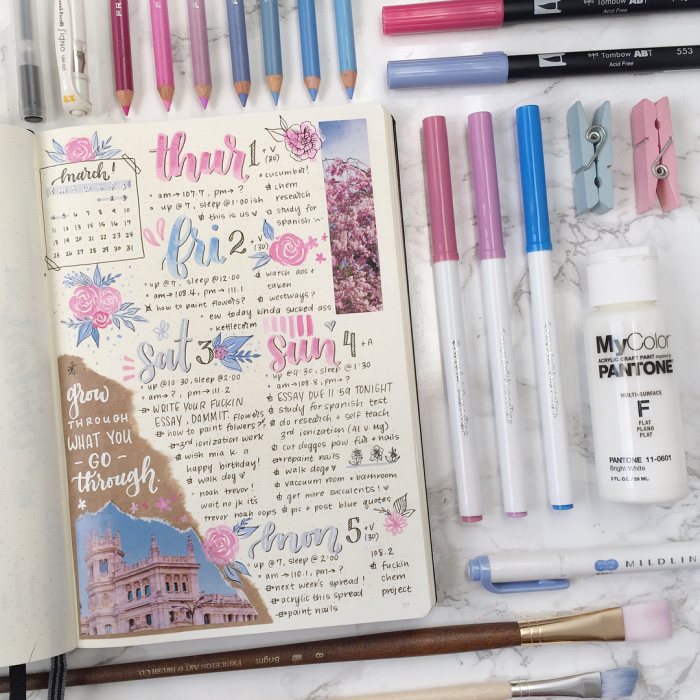 uni-ball Signo
Tombow ABT
Acid Free
Tombow ABT 553
Acid Free
march!
S M T W T F S
1 2 3
4 5 6 7 8 9 10
11 12 13 14 15 16 17
18 19 20 21 22 23 24
25 26 27 28 29 30 31
thur 1 + V
(30)
• am → 107.7, pm → ?
• up @ 7, sleep @ 1:00ish
this is us
• cucumber!
chem
research
study for
spanish
fri 2 + V
(30)
• up @ 7, sleep @ 12:00
• am → 108.4, pm → 111.1
how to paint flowers?
watch aos +
taken
westways?
• ew today kinda sucked ass
• kettlecorn
sat 3
• up @ 10:30, sleep @ 2:00
• am → ?, pm → 111.2
WRITE YOUR FUCKIN
ESSAY, DAMMIT.
how to paint flowers?
3rd ionization work
wish mia k. a
happy birthday!
walk dog
• noah trevor!
wait no jk it's
trevor noah oops
sun 4 + A
• up @ 9:30, sleep @ 1:30
• am → 108.8, pm → ?
ESSAY DUE 11:59 TONIGHT
study for spanish test
do research + self teach
3rd ionization (Al v. Mg)
cut doggos paw fur + nails
repaint nails
walk dog
vaccuum room + bathroom
get more succulents!
pic + post blue quotes
grow
THROUGH
WHAT YOU
- GO -
through.
mon 5 + V
(30)
• up @ 7, sleep @ 2:00
• am → 110.1, pm → ?
next week's spread!
acrylic this spread
paint nails
108.2
fuckin
chem
project
MyColor
ACRYLIC CRAFT PAINT
PANTONE
MULTI-SURFACE
F
FLAT
PLANO
PLAT
PANTONE 11-0601
Bright White
2 FL. OZ./59 ML.
MILDLIN
PRINCETON ART & BRUSH CO. Bright 8